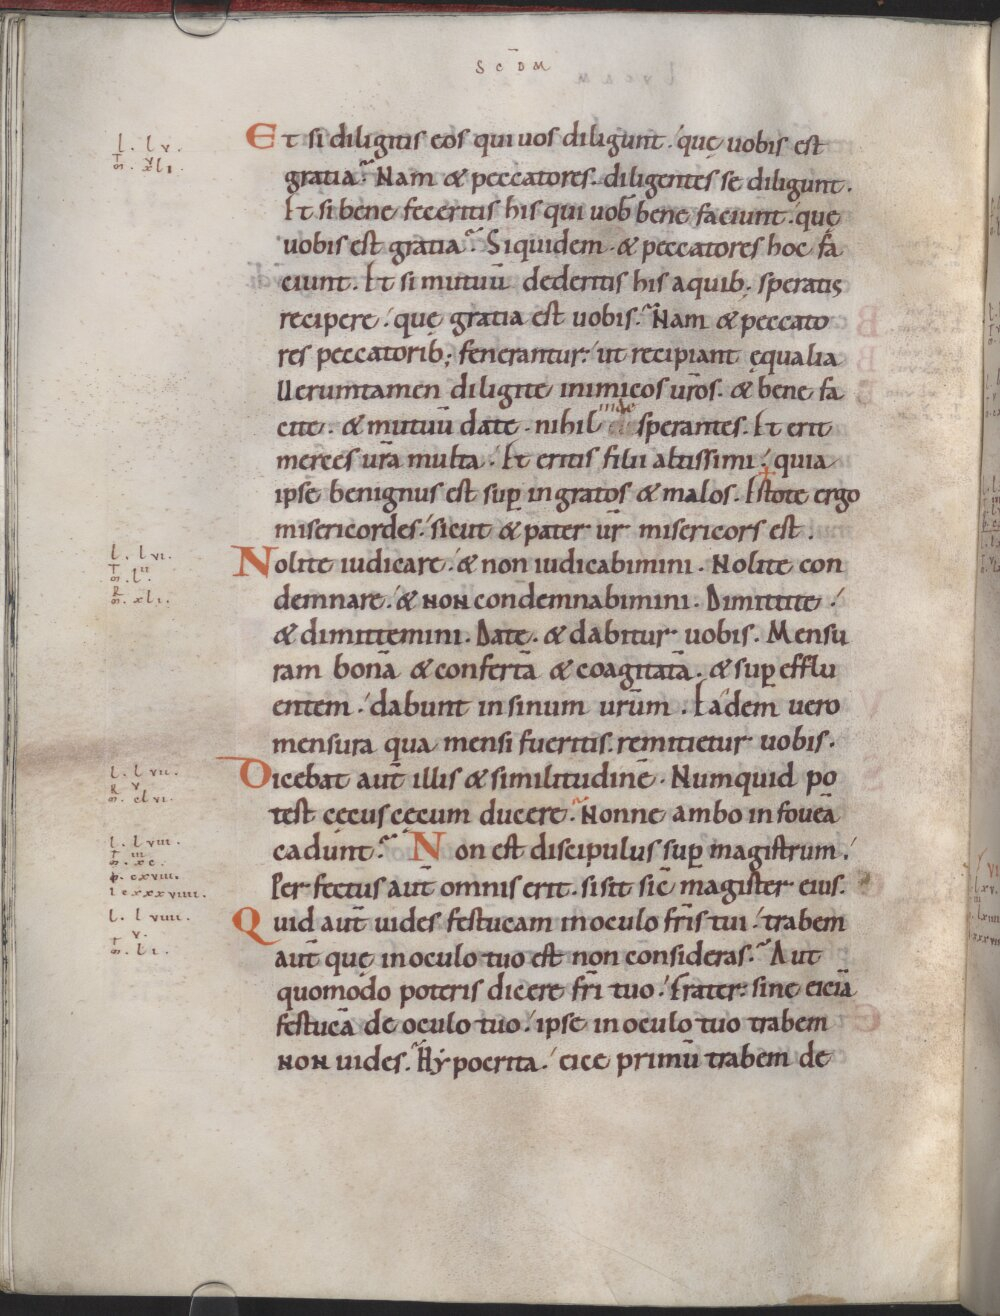 SCDM̄
l. lv.
T
S. xlv
i
Et si diligitis eos qui uos diligunt. quę uobis est
gratia? Nam & peccatores. diligentes se diligunt.
Et si bene feceritis his qui uob̄ bene faciunt. quę
uobis est gratia? Siquidem. & peccatores hoc fa
ciunt. Et si mutuū dederitis his a quib; speratis
recipere. quę gratia est uobis? Nam & peccato
res peccatorib; fenerantur: ut recipiant ęqualia
Ueruntamen diligite inimicos ur̄os. & bene fa
cite. & mutuū date. nihil inde sperantes. Et erit
merces ur̄a multa. Et eritis filii altissimi. quia
ipse benignus est sup̄ ingratos & malos. Estote ergo
misericordes. sicut & pater ur̄ misericors est.
l. lvi.
T
S. lii.
R
S. xli.
Nolite iudicare. & non iudicabimini. Nolite con
demnare. & NON condemnabimini. Dimittite.
& dimittemini. Date. & dabitur uobis. Mensu
ram bonā & confertā & coagitatā. & sup̄ efflu
entem. dabunt in sinum urūm. Eadem uero
mensura qua mensi fueritis. remitietur uobis.
l. lvii.
R
S. clvi.
Dicebat aut̄ illis & similitudinē. Numquid po
test cęcus cęcum ducere? Nonne ambo in foueā
l. lviii.
T
S. xc.
iii
p. cxviii.
i cxxxviiii.
cadunt? Non est discipulus sup̄ magistrum.
Perfectus aut̄ omnis erit. si sit sic̄ magister eius.
l. lviiii.
T
S. li.
v.
Quid aut̄ uides festucam in oculo fr̄is tui. trabem
aut̄ quę in oculo tuo est non consideras? Aut
quomodo poteris dicere fr̄i tuo. Frater: sine eiciā
festucā de oculo tuo. ipse in oculo tuo trabem
NON uides? Hẏpocrita. eice primū trabem de